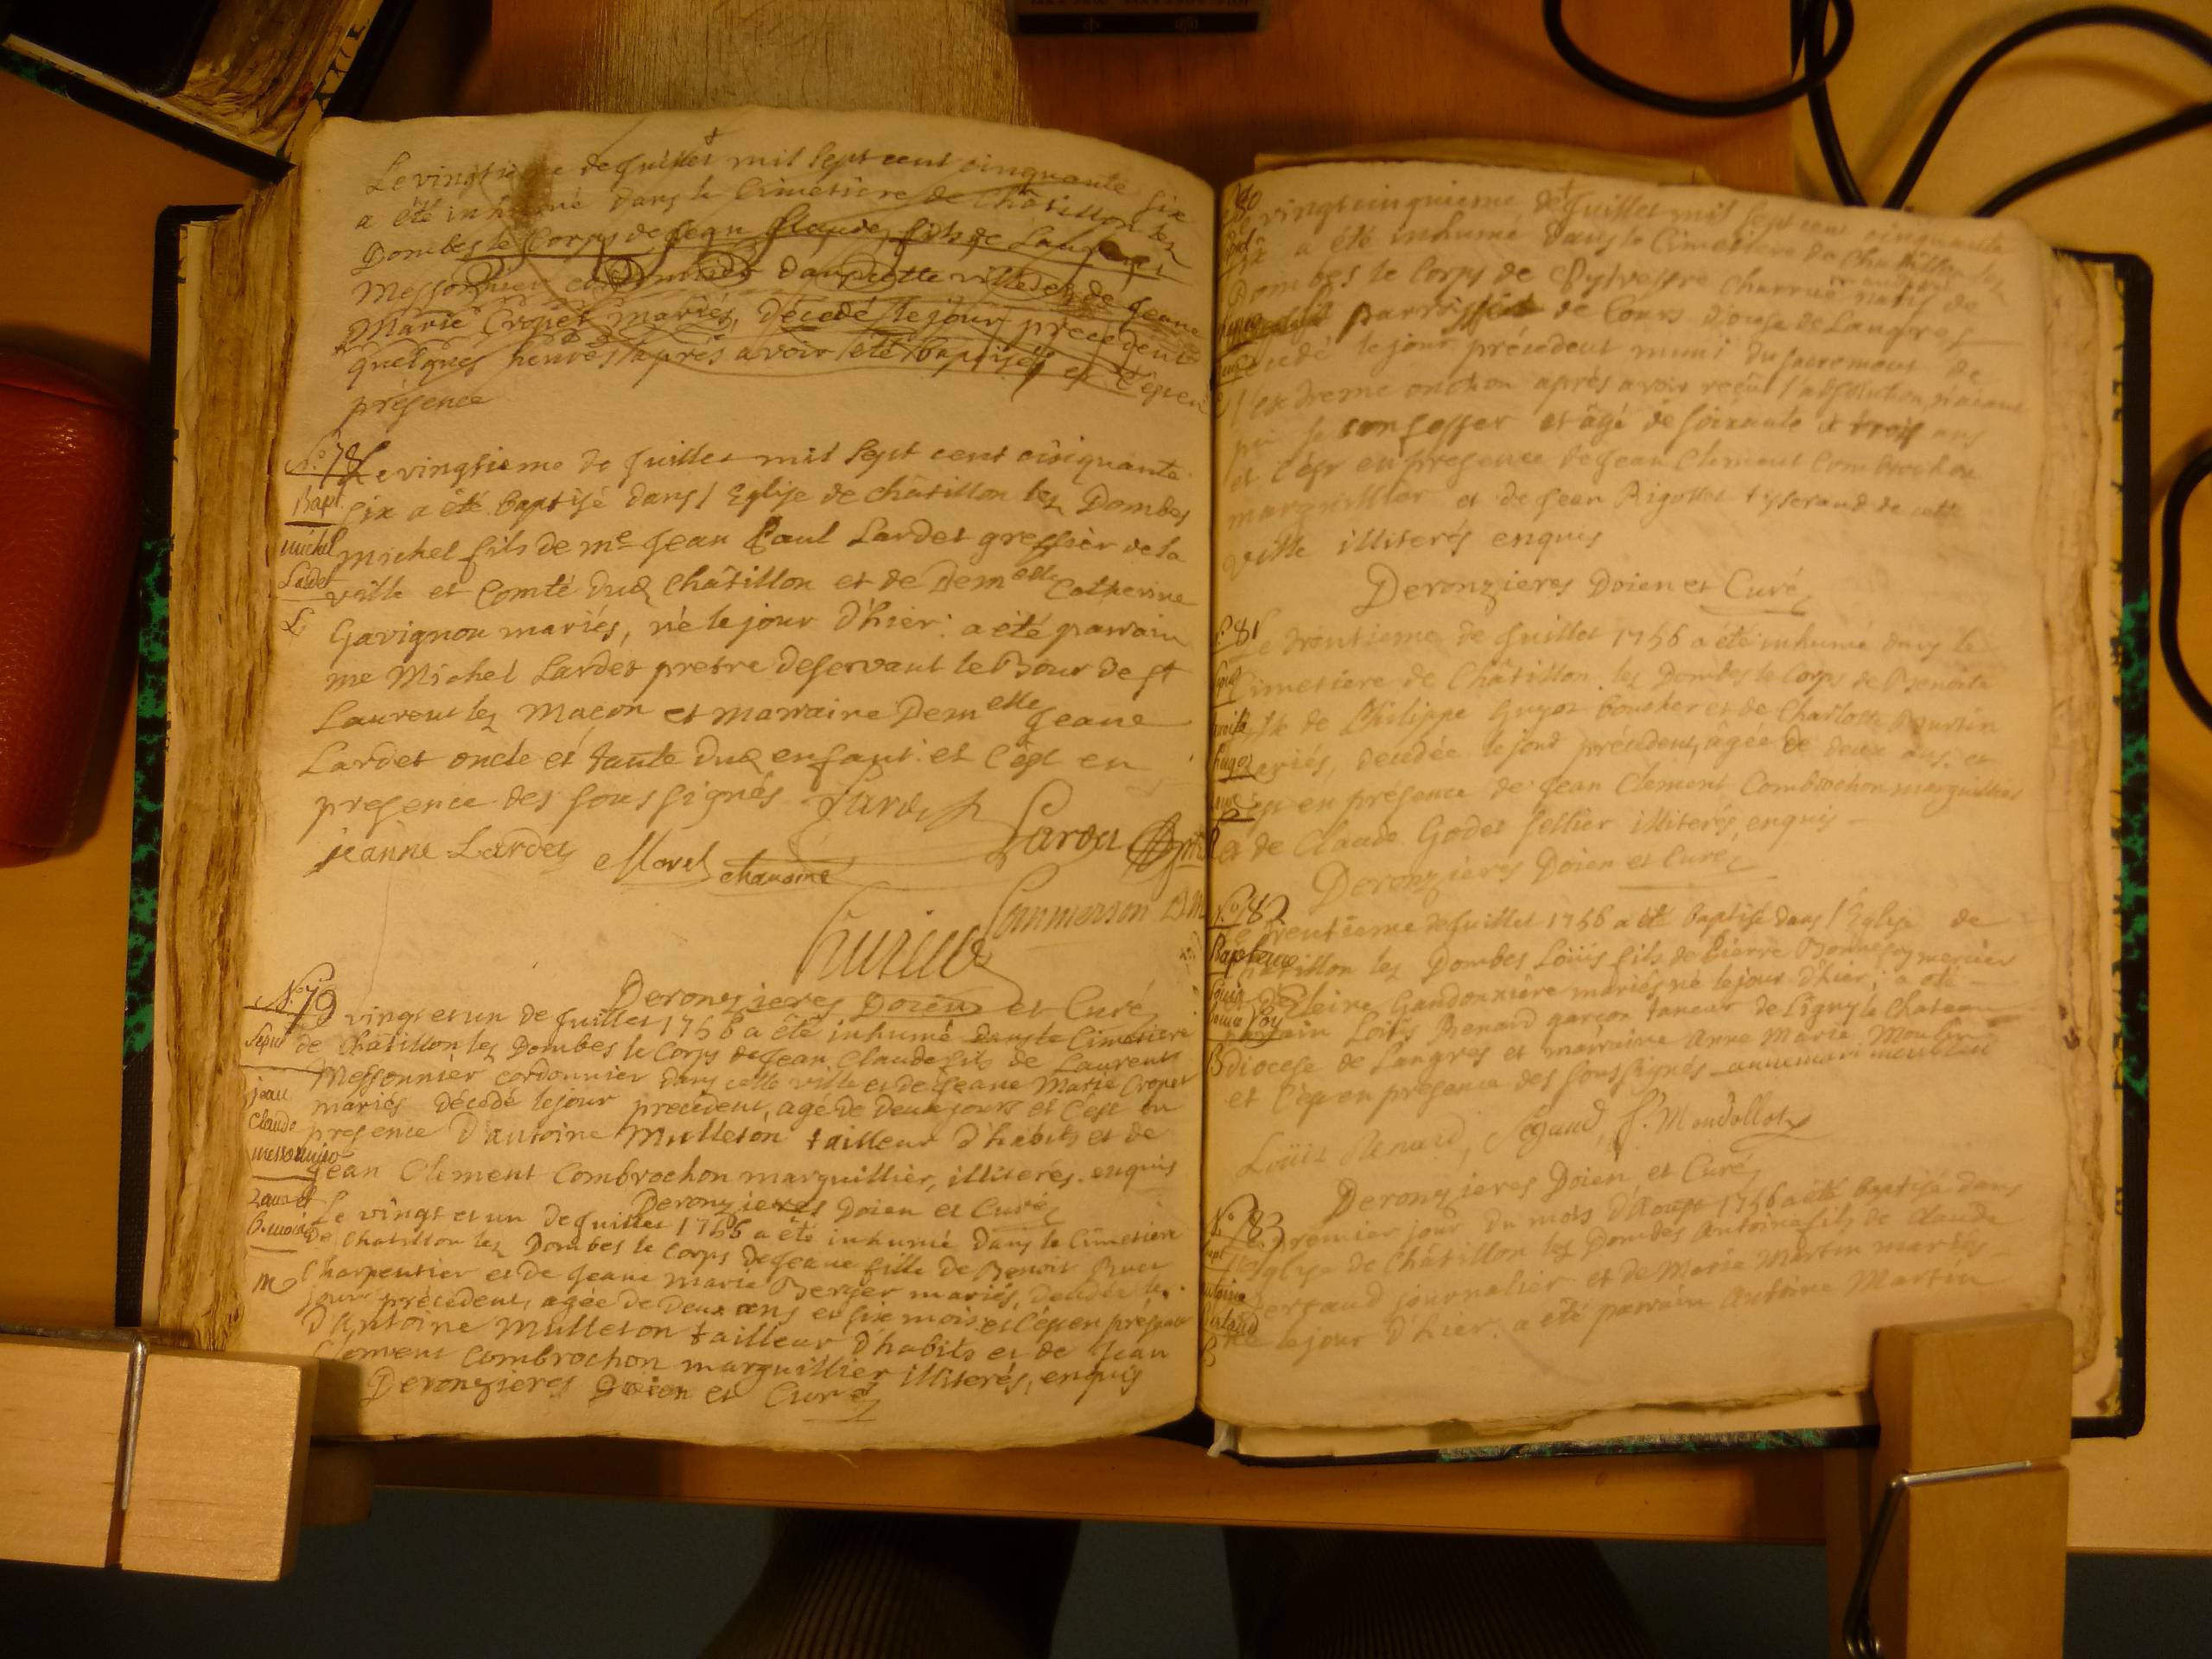 Le vingtieme de Juillet mil sept cent cinquante six
a été inhumé dans le Cimetiere de Châtillon lez
Dombes le Corps de Jean Claude fils de Laurent
Messonnier cordonnier dans cette ville et de Jeane
Marie Cropet mariés, décedé le jour precedent
quelques heures aprés avoir été baptisé et c'ép en
présence
N.o 78 Le vingtieme de Juillet mil sept cent cinquante
Bapt. six a été baptisé dans l'Eglise de châtillon lez Dombes
michel michel fils de me Jean Paul Lardet greffier de la
Lardet ville et Comté dud Châtillon et de Demelle Catherine
L Gavignou mariés, né le jour d'hier: a été parrain
me Michel Lardet prestre deservant le Bour de st
Laurent lez Macon et marraine Demelle Jeane
Lardet oncle et tante dud enfant et c'ép en
presence des soussignés Lardet
jeanne Lardet Morel chanoine Lardet
Commerson
Deronzieres Doien et Curé
N.o 79 vingt et un de Juillet 1756 a été inhumé dans le Cimetiere
Sepu de Châtillon lez Dombes le Corps de Jean Claude fils de Laurent
Messonnier cordonnier dans cette ville et de Jeane Marie Cropet
jean mariés décedé le jour precedent, agé de deux jours et c'ép en
Claude presence d'antoine Mulleton tailleur d'habits et de
messonnier Jean Clement Combrochon marguillier, illiterés. enquis
Deronzieres Doien et Curé
Le vingt et un de Juillet 1756 a été inhumé dans le Cimetiere
de Châtillon lez Dombes le Corps de Jeane fille de Benoit
Charpentier et de Jeane marie Berger mariés, decedée le
m jour précedent, agée de deux ans et six mois et c'ép en présence
d'Antoine Mulleton tailleur d'habits et de Jean
Clement Combrochon marguillier illiterés, enquis
Deronzieres Doien et Curé
80 vingt cinquieme de Juillet mil sept cent cinquante
six a été inhumé dans le Cimetiere de Chatillon lez
Dombes le Corps de Sylvestre Charrue natif de
parroisse de Cours diocese de Langres
decedé le jour précedent muni du sacrement de
l'extreme onction aprés avoir reçu l'absolution, n'aiant
pu se confesser et âgé de soixante et trois ans
et c'ép en presence de Jean Clement Combrochon
marguillier et de Jean Rigottet tysserand de cette
ville illiterés enquis
Deronzieres Doien et Curé
N.o 81 Le trentieme de Juillet 1756 a été inhumé dans le
Cimetiere de Châtillon lez Dombes le Corps de Benoite
fille de Philippe Guyot boucher et de Charlotte
mariés, decedée le jour précedent, âgée de deux ans. et
c'ép en présence de Jean Clement Combrochon marguillier
et de Claude Godet sellier illiterés, enquis
Deronzieres Doien et Curé
N.o 82 Le trentieme de Juillet 1756 a été baptisé dans l'Eglise de
Chatillon lez Dombes Loüis fils de Pierre Bonnefoy mercier
et de Gandonniere mariés né le jour d'hier; a été
parrain Loüis Renard garçon taneur de Ligny le Chateau
B diocese de Langres et marraine Anne Marie Moulin
et c'ép en présence des soussignés annemari
Loüis Renard, Segaud, f. Mondollot
Deronzieres Doien et Curé
N.o 83 Le premier jour du mois d'Aoust 1756 a été baptisé dans
l'Eglise de Châtillon lez Dombes Antoine fils de Claude
journalier et de Marie Martin mariés
né le jour d'hier, a été parrain Antoine Martin